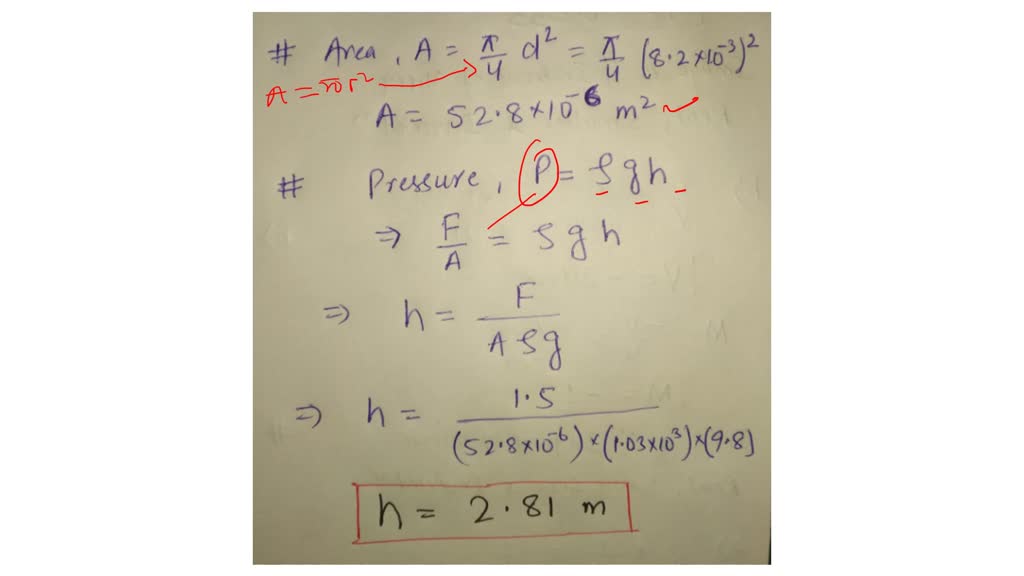 # Area, A = π/4 d² = π/4 (8.2×10⁻³)²
A = πr²
A = 52.8×10⁻⁶ m²
# Pressure, P = ρgh
⇒ F/A = ρgh
⇒ h = F/Aρg
⇒ h = 1.5/(52.8×10⁻⁶)×(1.03×10³)×(9.8)
h = 2.81 m